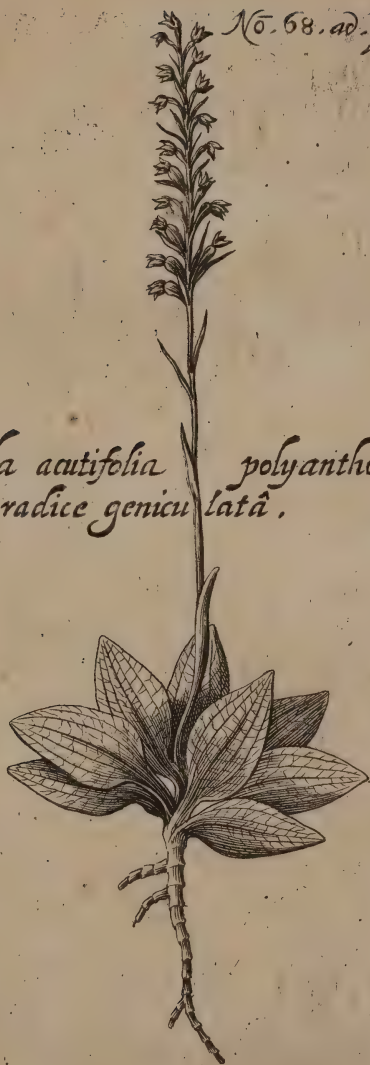 No. 68. ad.
acutifolia polyantho
radice geniculatâ.